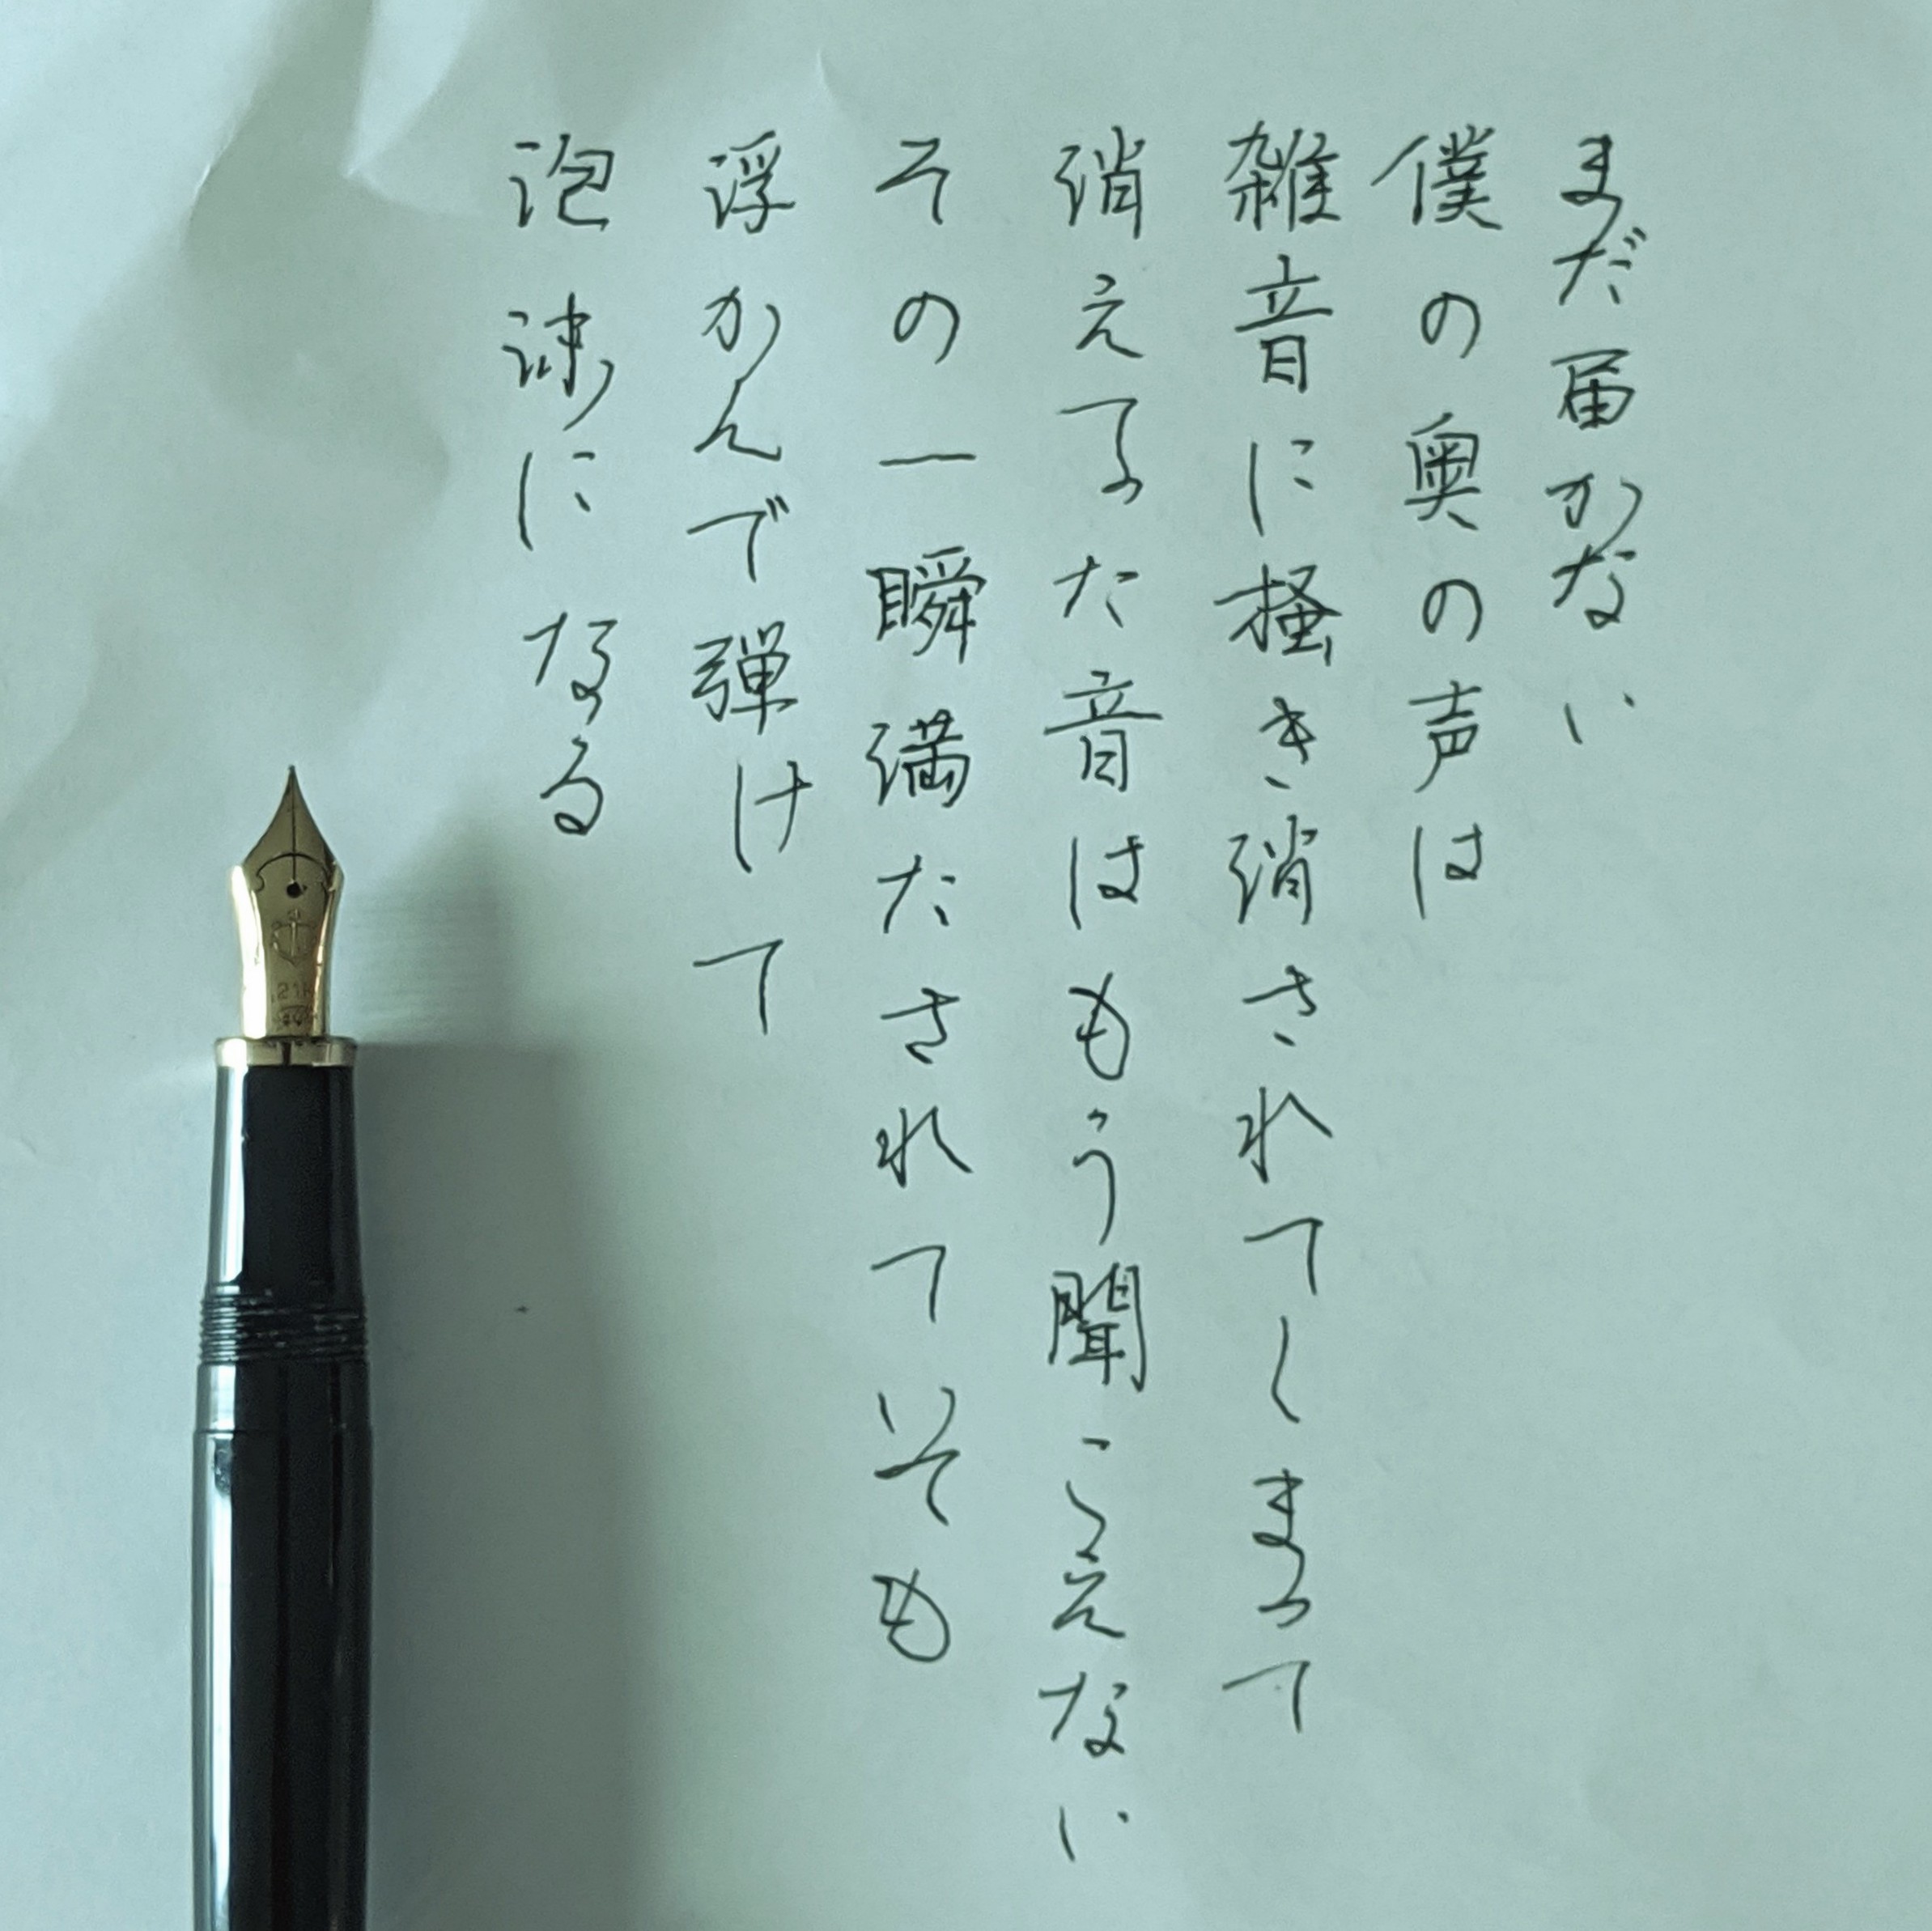 まだ届かない
僕の奥の声は
雑音に掻き消されてしまって
消えてった音はもう聞こえない
その一瞬満たされていても
浮かんで弾けて
泡沫になる
21K